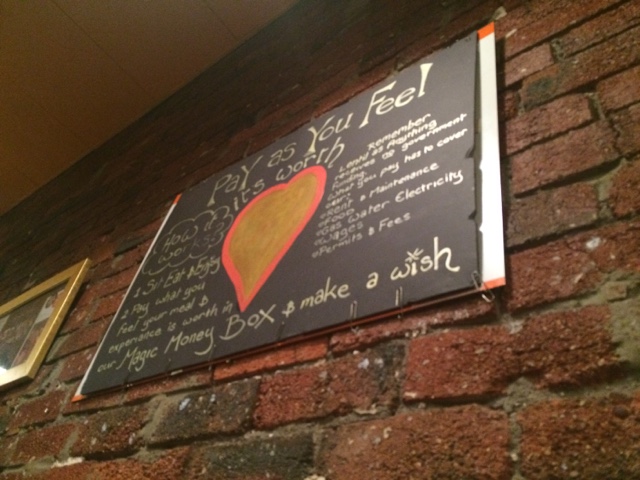 Pay as You Feel
it's worth
How it works?
1 Sit Eat & Enjoy
2 Pay what you
feel your meal &
experience is worth in
our Magic Money Box & make a wish
Remember
Lentil as Anything
receives no government
funding.
What you pay has to cover
our:
Rent & Maintenance
Food
Gas Water Electricity
Wages
Permits & Fees